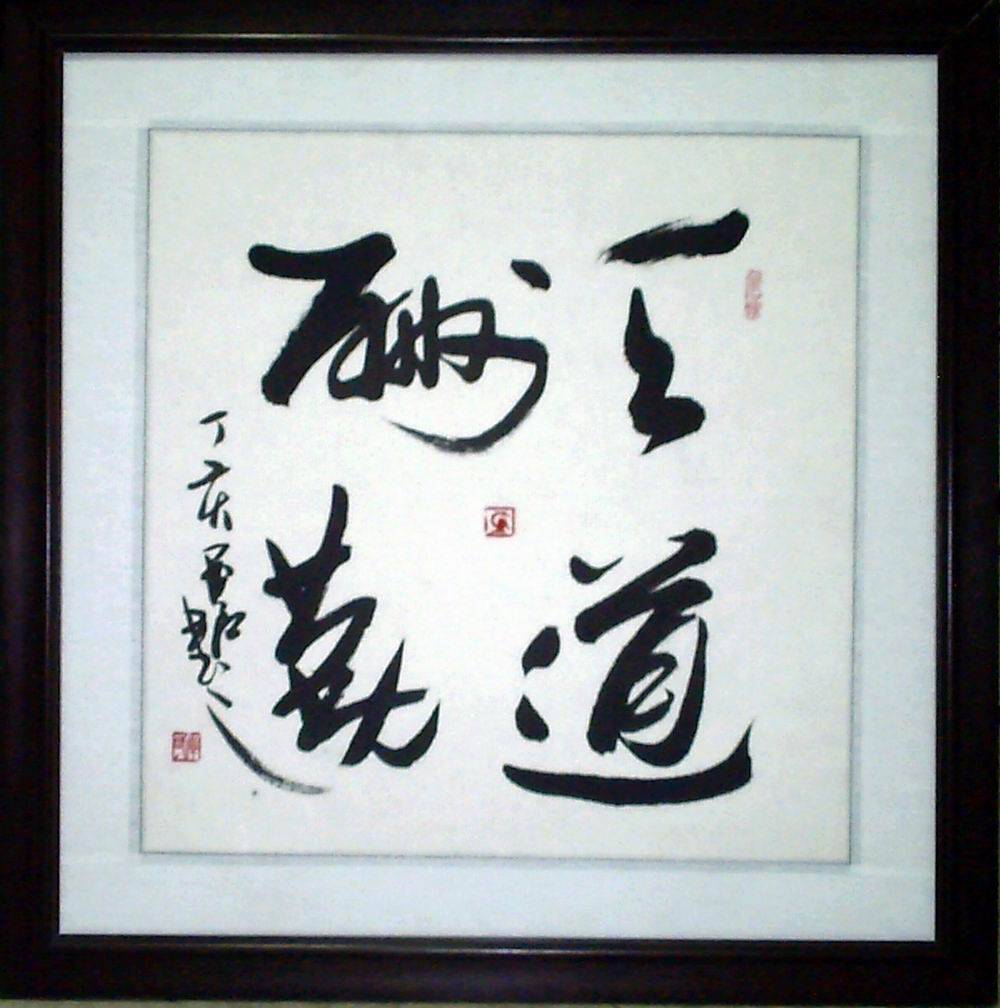 天道
酬勤
丁亥